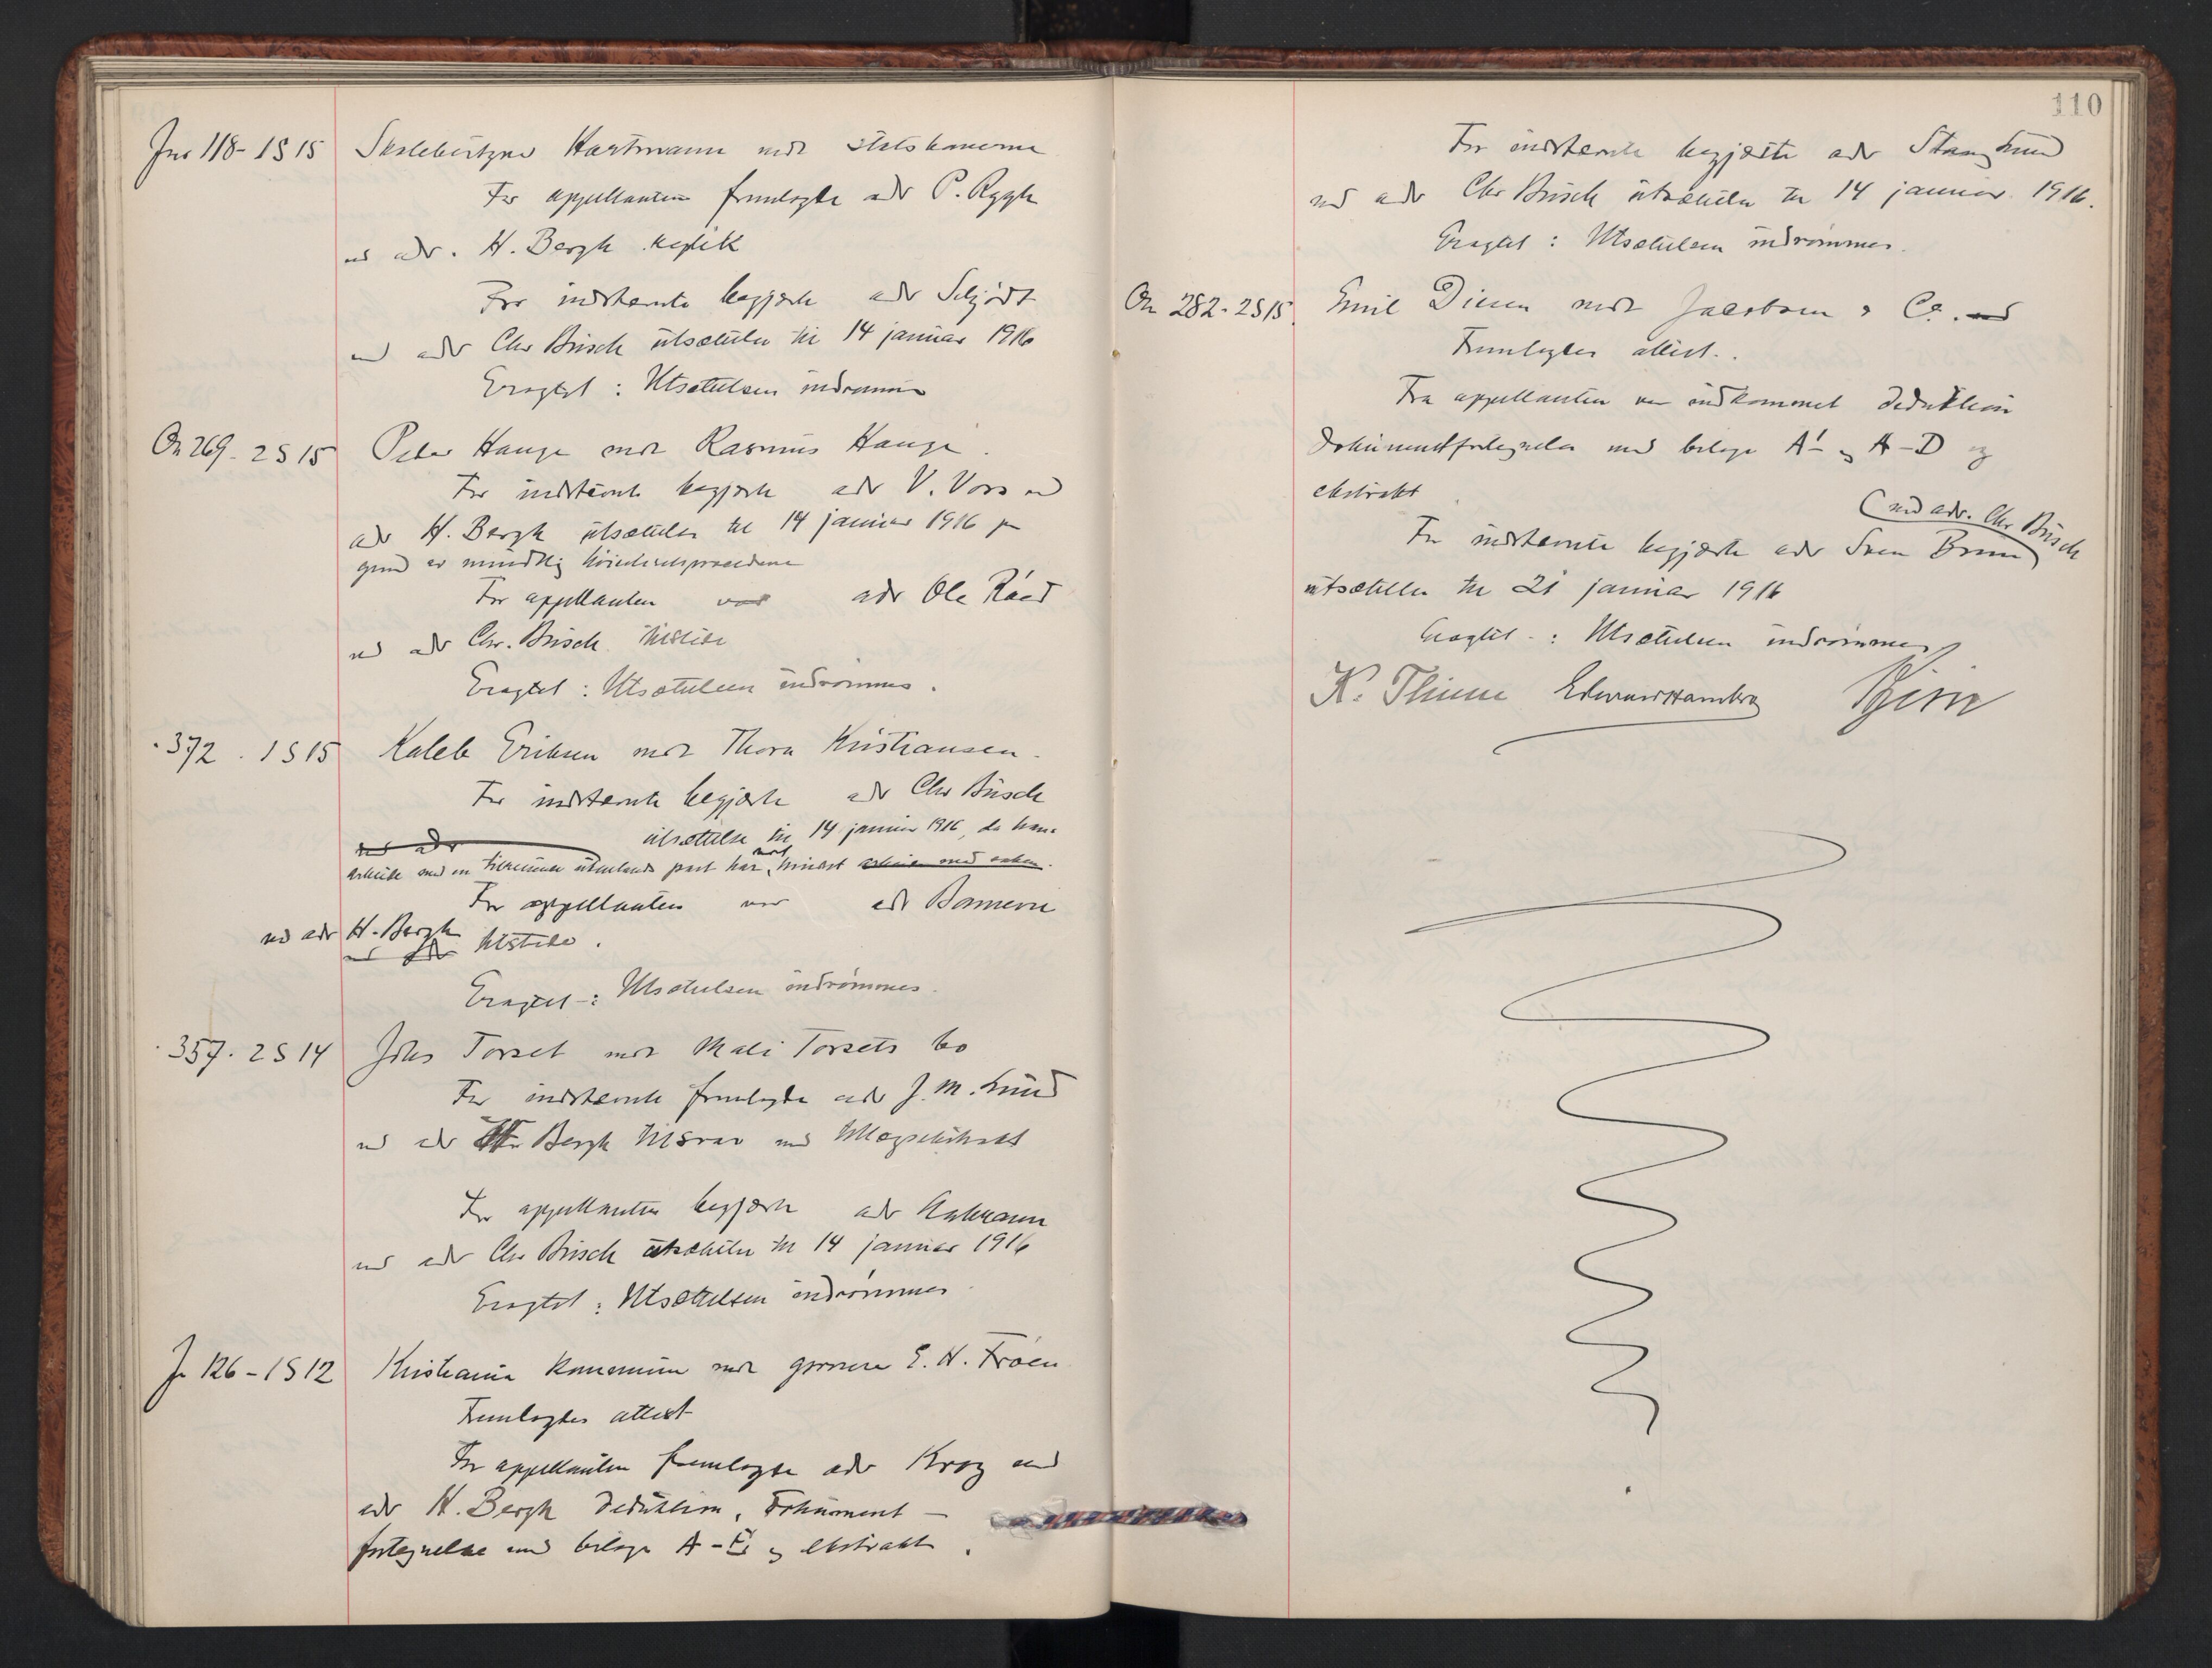 Jnr 118-1S15 Skolebestyrer Hartmann mot Statskassen
For appellanten fremlagte adv P. Rygh
ved adv. H. Bergh replik
For indstevnte begjærte adv Schjødt
ved adv Chr Büsch utsættelse til 14 januar 1916
Eragtet: Utsættelsen indrømmes
On 269-2S15 Peder Hauge mot Rasmus Hauge.
For indstevnte begjærte adv V. Voss ved
adv H. Bergh utsættelse til 14 januar 1916 på
grund av mundtlig høiesteretsprocedure
For appellanten var adv Ole Røed
ved adv Chr. Büsch tilstede
Eragtet: Utsættelsen indrømmes.
372. 1S15 Kaleb Eriksen mot Thora Kristiansen.
For indstevnte begjærte adv Chr Büsch
ved adv utsættelse til 14 januar 1916, da hans
arbeide med en part har
For appellanten var adv
ved adv H. Bergh
tilstede.
Eragtet: Utsættelsen indrømmes.
357. 2S14 Johs Torset mot Mali Torsets bo
For indstevnte fremlagde adv J. M. Lund
ved adv Bergh tilsvar med tillægsekstrakt
For appellanten begjærte adv
ved adv Chr Büsch utsættelse til 14 januar 1916
Eragtet: Utsættelsen indrømmes
Jn 126-1S12 Kristiania kommune mot grosserer E. H. Frøen
Fremlagdes attest
For appellanten fremlagde adv Krog ved
adv H. Bergh deduktion, dokument-
fortegnelse med bilage A-E og ekstrakt.
110
For indstevnte begjærte adv Stang Lund
ved adv Chr Büsch utsættelse til 14 januar 1916.
Eragtet: Utsættelsen indrømmes.
On 282-2S15 Emil Diesen mot Jacobsen & Co.
Fremlagdes attest.
Fra appellanten var indkommet deduktion
dokumentfortegnelse med bilage A! og A-D og
ekstrakt
(ved adv. Chr Büsch
For indstevnte begjærte adv Sven Brun
utsættelse til 21 januar 1916
Eragtet: Utsættelsen indrømmes
K. Thinn Edvard Hambro